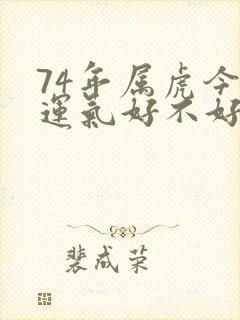 74年属虎今
運氣好不好
裴成荣